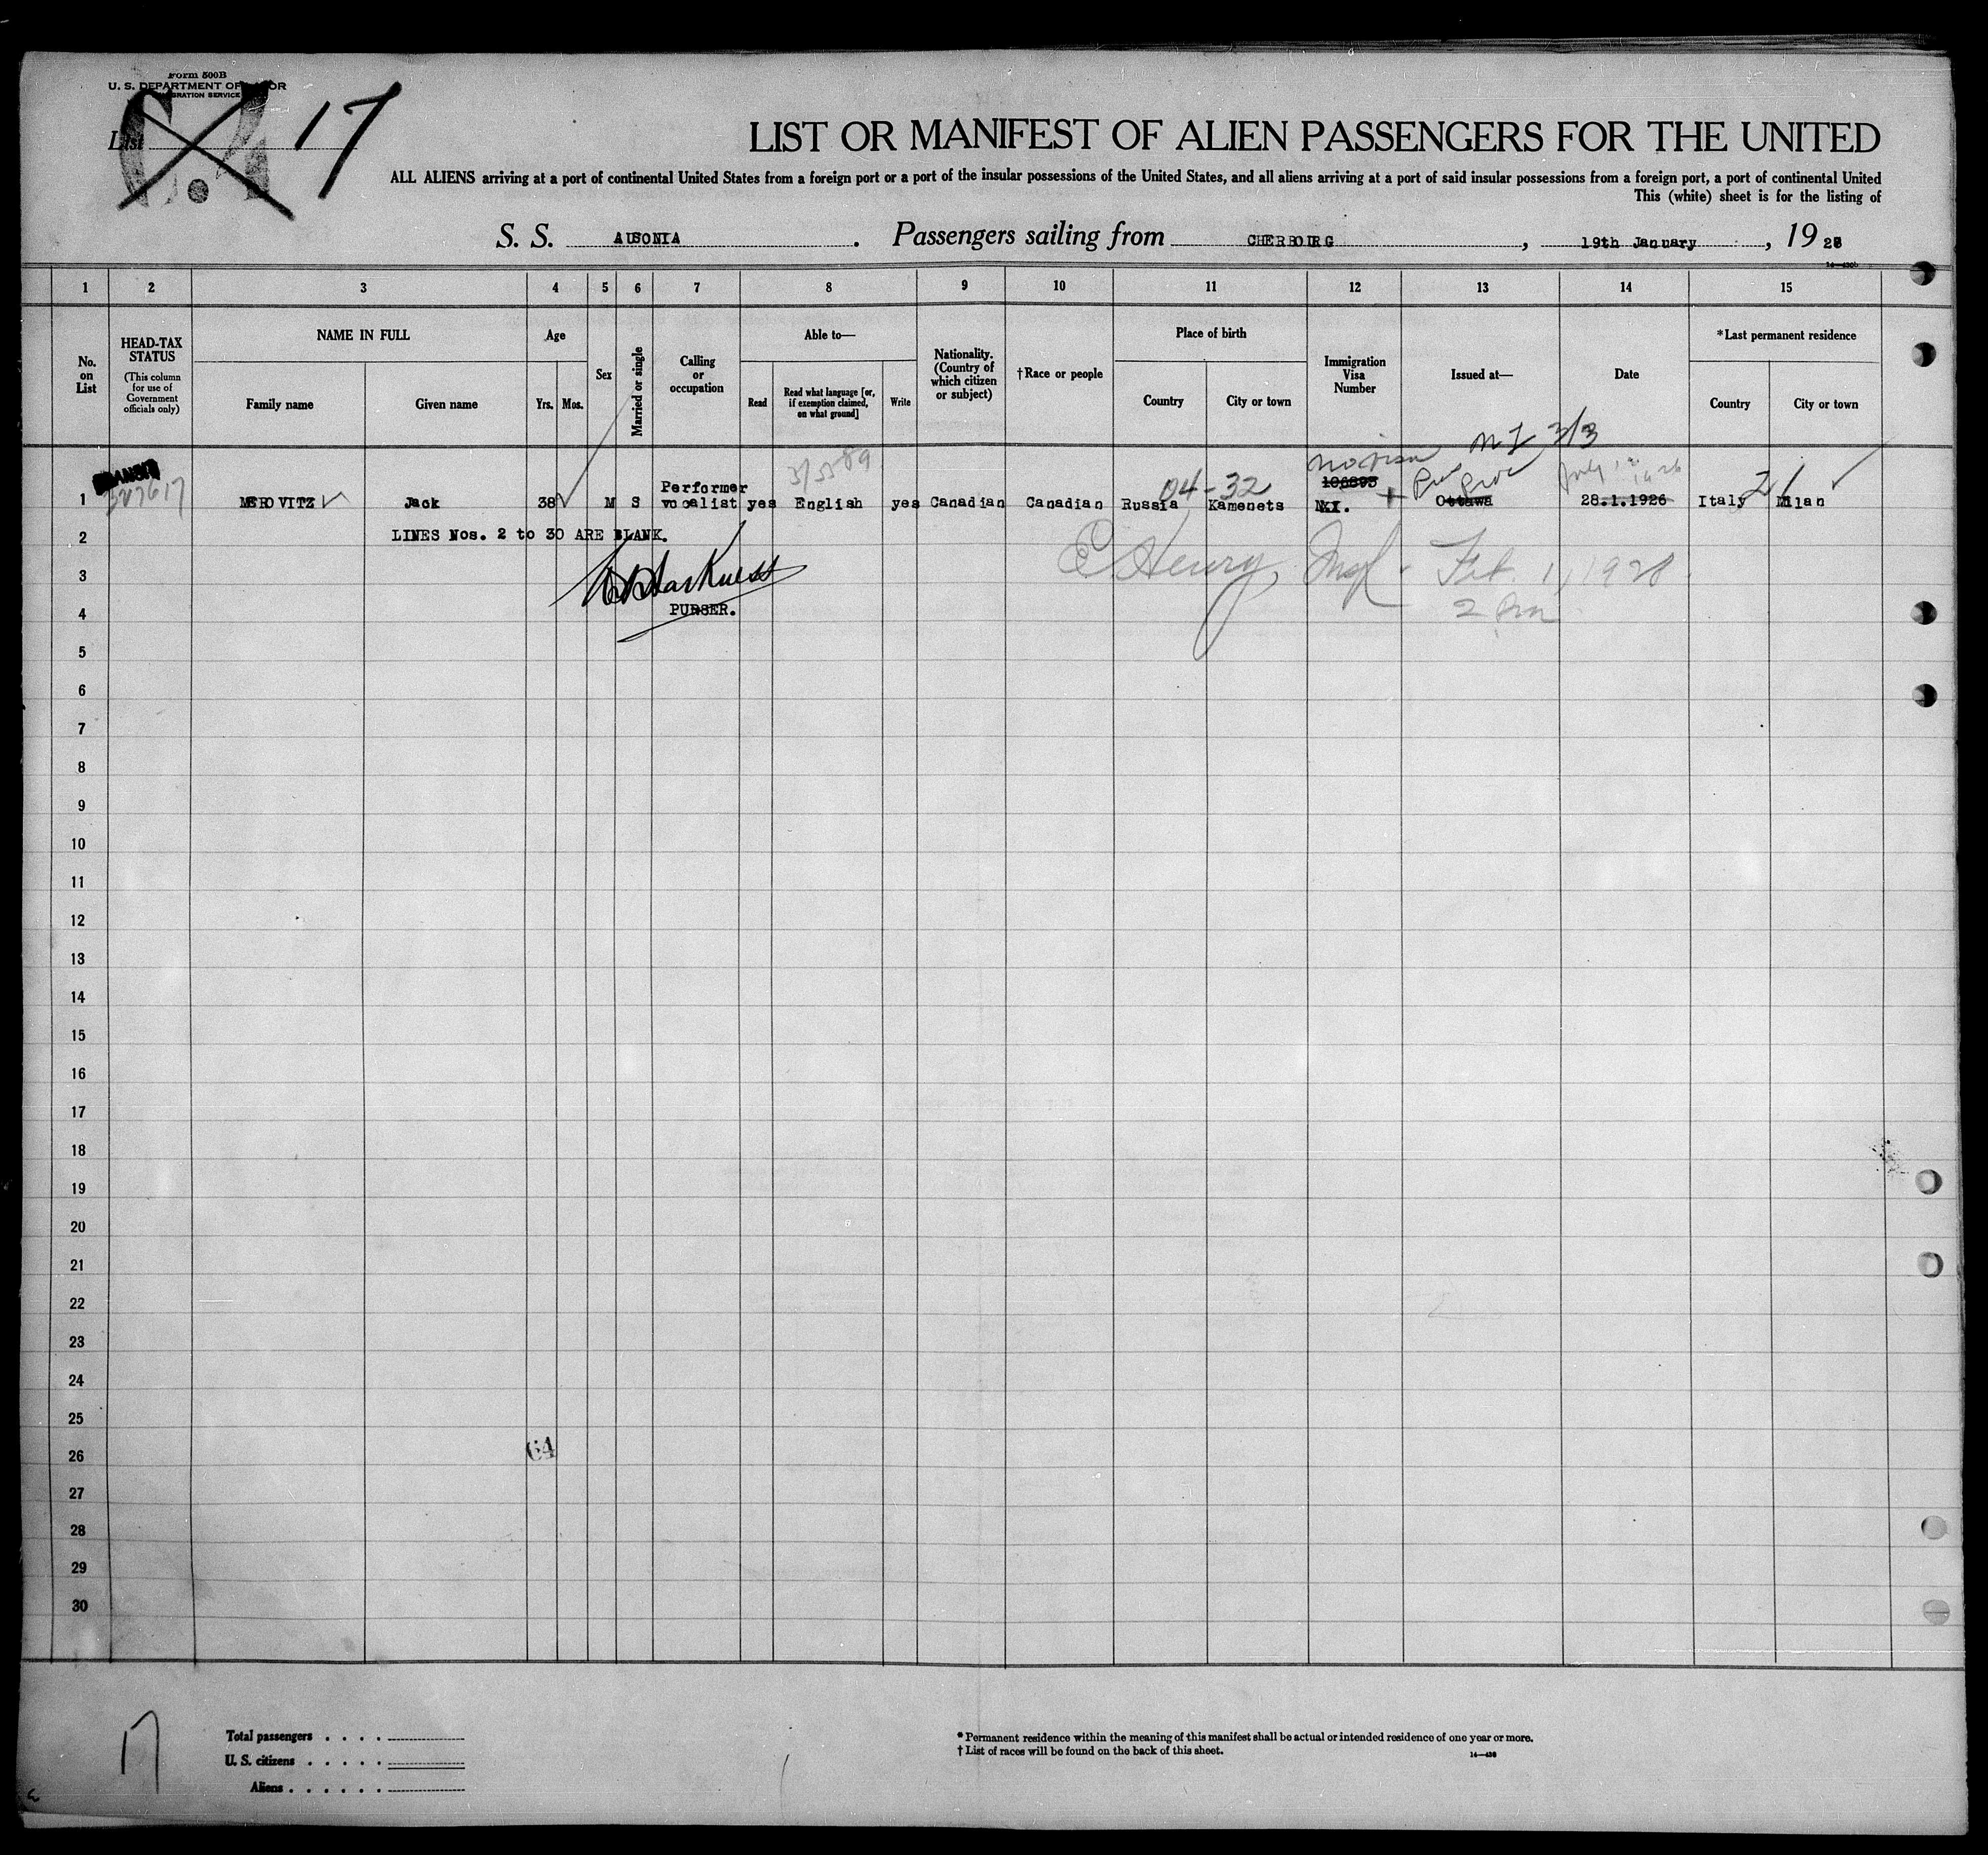 Form 500B
U. S. DEPARTMENT OF
List
17
LIST OR MANIFEST OF ALIEN PASSENGERS FOR THE UNITED
ALL ALIENS arriving at a port of continental United States from a foreign port or a port of the insular possessions of the United States, and all aliens arriving at a port of said insular possessions from a foreign port, a port of continental United
This (white) sheet is for the listing of
S. S. AUSONIA. Passengers sailing from CHERBOURG, 19th January, 1928
1 2 3 4 5 6 7 8 9 10 11 12 13 14 15
No. on List
HEAD-TAX STATUS (This column for use of Government officials only)
NAME IN FULL
Family name
Given name
Age
Yrs.
Mos.
Sex
Married or single
Calling or occupation
Able to—
Read
Read what language [or, if exemption claimed, on what ground]
Write
Nationality. (Country of which citizen or subject)
†Race or people
Place of birth
Country
City or town
Immigration Visa Number
Issued at—
Date
*Last permanent residence
Country
City or town
3/3
04-32
1 MEROVITZ Jack 38 M S Performer vocalist yes English yes Canadian Canadian Russia Kamenets 28.1.1926 Italy Milan
Ottawa
21
2 LINES Nos. 2 to 30 ARE BLANK.
3
E Henry, Insp. Feb. 1, 1928
2 Pm
4 PURSER.
5
6
7
8
9
10
11
12
13
14
15
16
17
18
19
20
21
22
23
24
25
26
64
27
28
29
30
17
Total passengers . . . .
U. S. citizens . . . . .
Aliens . . . . . .
*Permanent residence within the meaning of this manifest shall be actual or intended residence of one year or more.
†List of races will be found on the back of this sheet.